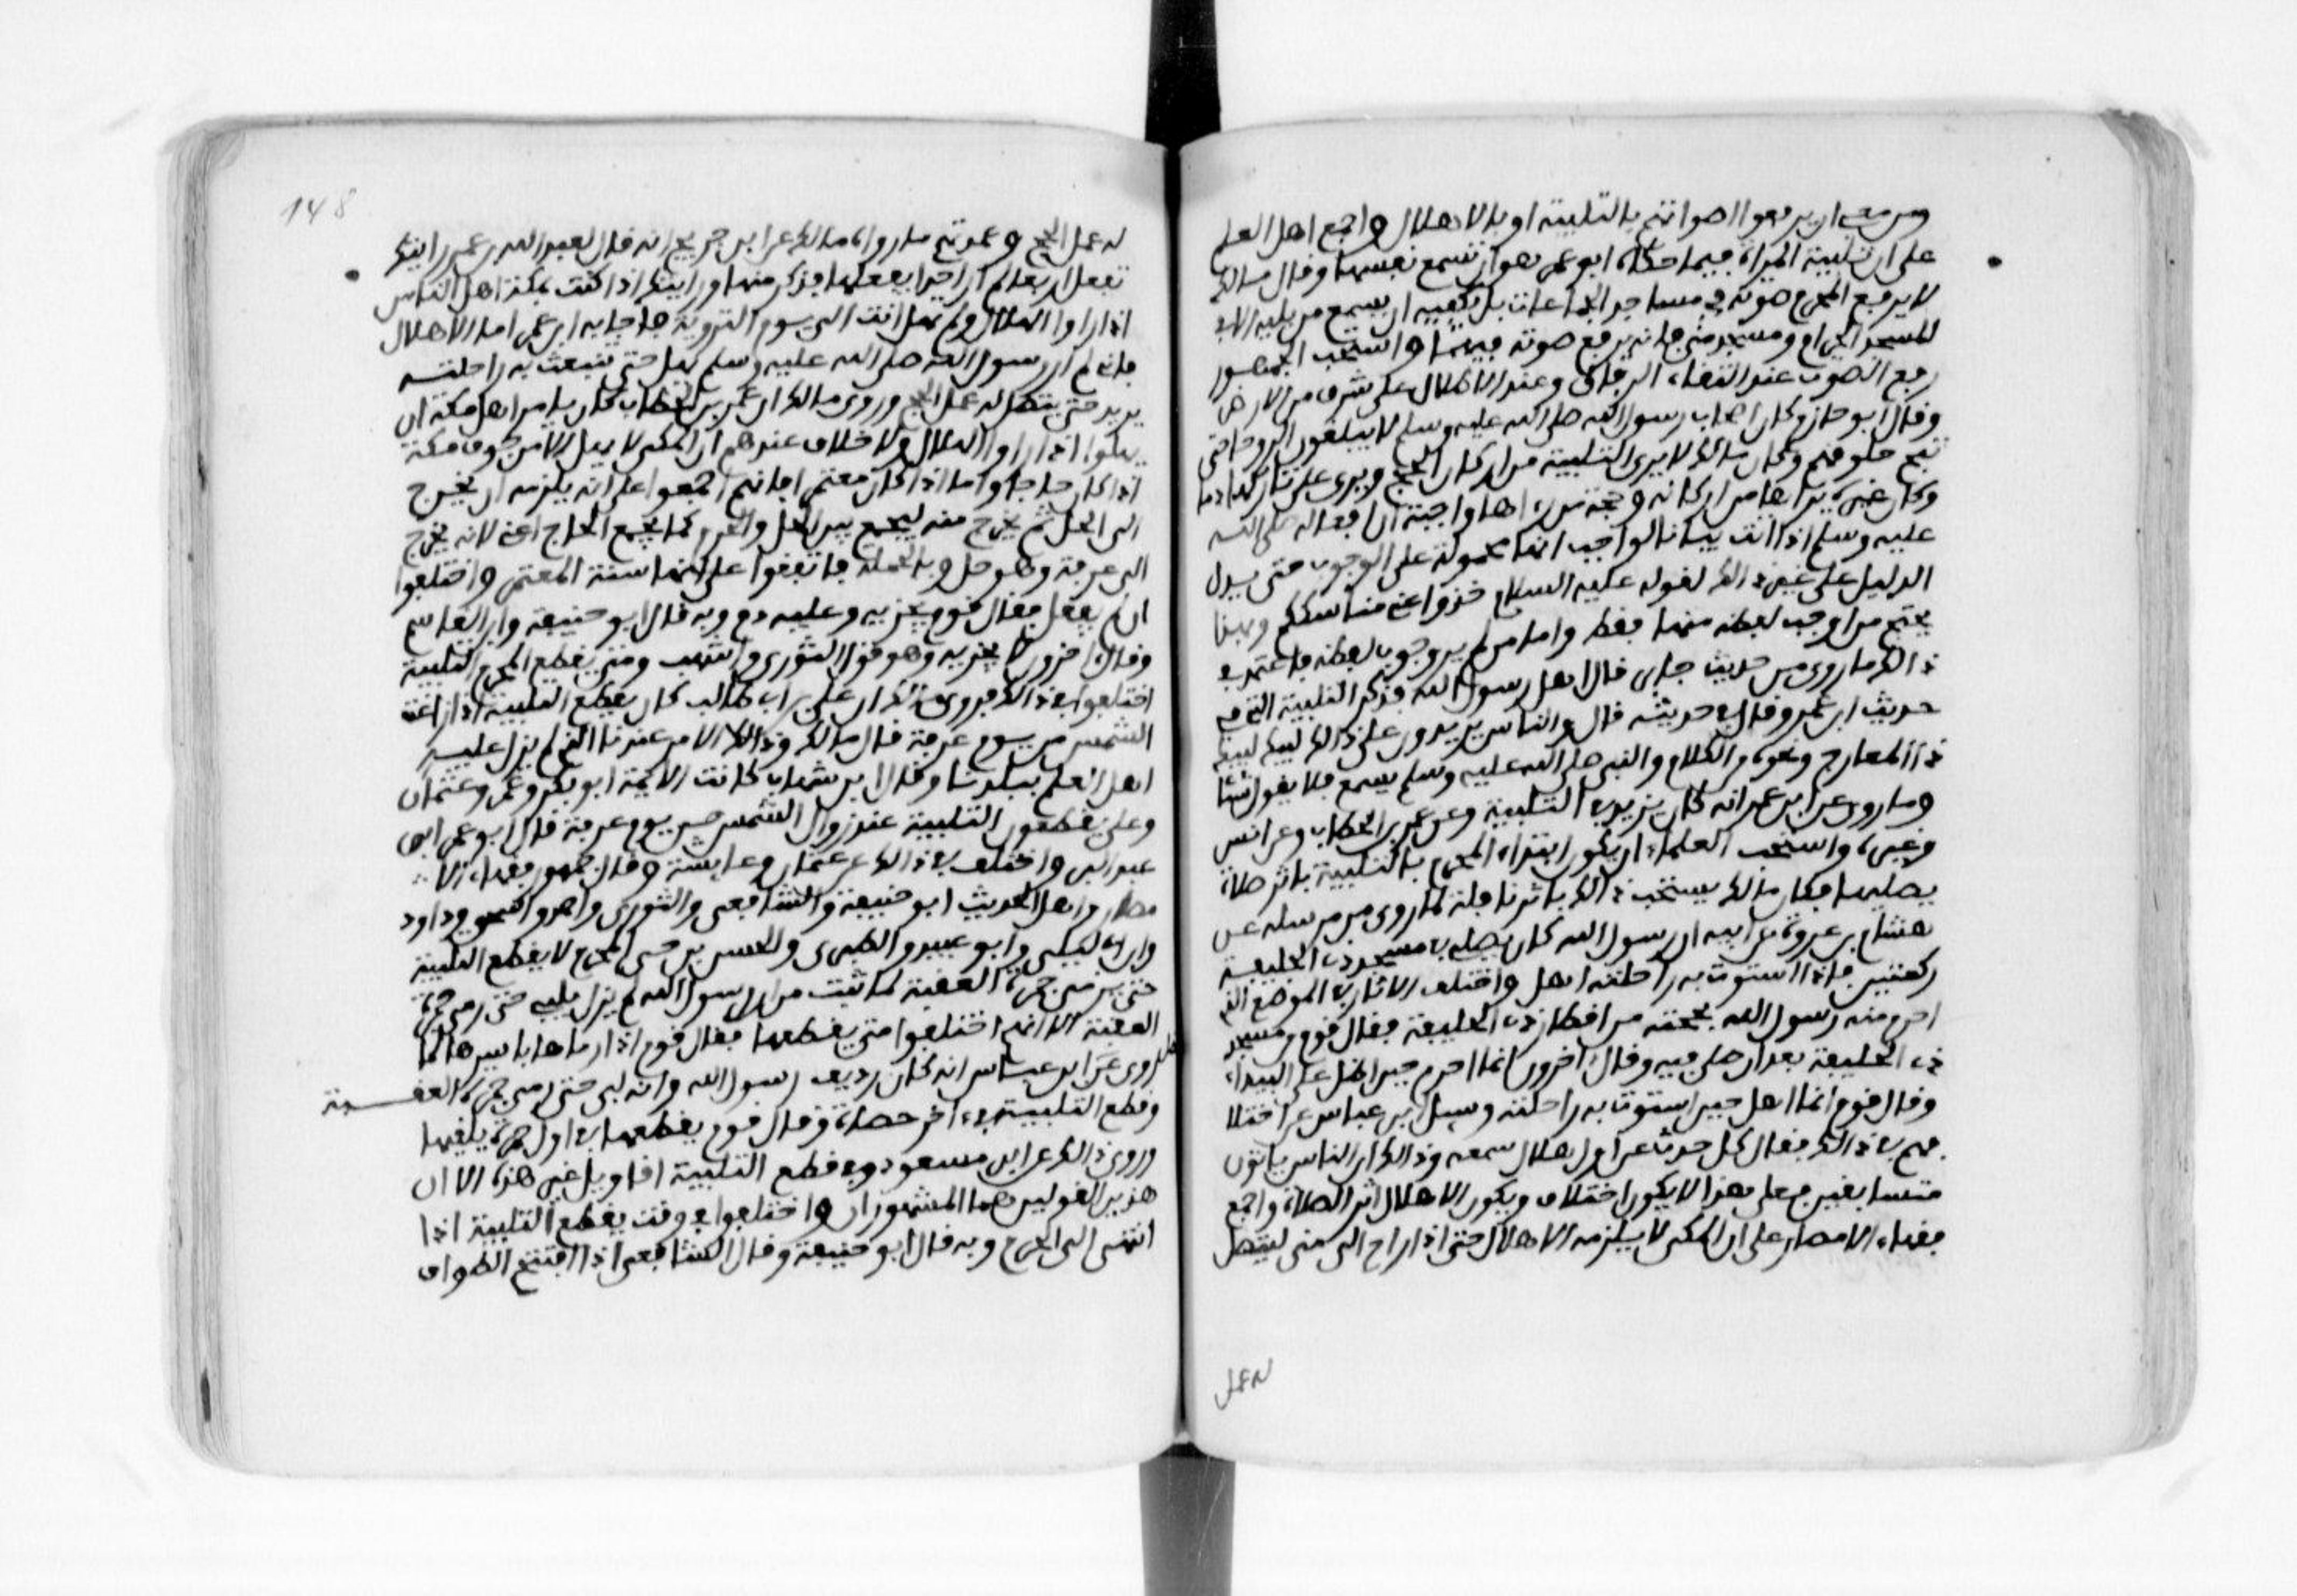 ومن معي ان يرفعوا اصواتهم بالتلبية او بالاهلال واجمع اهل العلم
على ان تلبية المراة فيما حكاه ابو عمر هو ان تسمع نفسها وقال مالك
لا يرفع المحرم صوته في مساجد الجماعات بل يكفيه ان يسمع من يليه الا في
المسجد الحرام ومسجد منى فانه يرفع صوته فيهما واستحب الجمهور
رفع الصوت عند التقاء الرفاق وعند الاطلال على شرف من الارض
وقال ابو حازم كان اصحاب رسول الله صلى الله عليه وسلم لا يبلغون الروحا حتى
تبح حلوقهم وكان مالك لا يرى التلبية من اركان الحج ويرى على تاركها دما
وكان غيره يراها من اركانه وحجة من راها واجبة ان افعاله صلى الله
عليه وسلم اذا اتت بيانا لواجب انها محمولة على الوجوب حتى يدل
الدليل على غير ذالك لقوله عليه السلام خذوا عني مناسككم وبهذا
يحتج من اوجب لفظه فيها فقط واما من لم ير وجوب لفظه فاعتمد في
ذالك ما روى من حديث جابر قال اهل رسول الله فذكر التلبية التي في
حديث ابن عمر وقال في حديثه قال والناس يزيدون على ذالك لبيك لبيك
ذا المعارج ونحوه من الكلام والنبي صلى الله عليه وسلم يسمع فلا يقول شيئا
وما روى عن ابن عمر انه كان يزيد في التلبية وعن عمر بن الخطاب وعن انس
وغيره واستحب العلماء ان يكون ابتداء المحرم بالتلبية باثر صلاة
يصليها فكان مالك يستحب ذالك باثر نافلة لما روى من مرسله عن
هشام بن عروة عن ابيه ان رسول الله كان يصلي في مسجد ذي الحليفة
ركعتين فاذا استوت به راحلته اهل واختلف الاثار في الموضع الذي
احرم منه رسول الله بحجته من اقطار ذي الحليفة فقال قوم من مسجد
ذي الحليفة بعد ان صلى فيه وقال اخرون انما احرم حين اطل على البيداء
وقال قوم انما اهل حين استوت به راحلته وسيل ابن عباس عن اختلا
فهم في ذالك فقال كل حدث عن اول اهلال سمعه وذالك ان الناس ياتون
متسابقين فعلى هذا لا يكون اختلاف ويكون الاهلال اثر الصلاة واجمع
فقهاء الامصار على ان المكي لا يلزمه الاهلال حتى اذا راح الى منى ليتصل
له عمل الحج وعمدتهم ما رواه مالك عن ابن جريج انه قال لعبد الله بن عمر رايتك
تفعل اربعا لم ار احدا يفعلها فذكر منها ورايتك اذا كنت بمكة اهل الناس
اذا راوا الهلال ولم تهل انت الى يوم التروية فاجابه ابن عمر اما الاهلال
فاني لم ار رسول الله صلى الله عليه وسلم يهل حتى تنبعث به راحلته
يريد حتى يتصل له عمل الحج وروى مالك ان عمر بن الخطاب كان يامر اهل مكة ان
يهلوا اذا راوا الهلال ولا خلاف عندهم ان المكي لا يهل الا من جوف مكة
اذا كان حاجا واما اذا كان معتمرا فانهم اجمعوا على انه يلزمه ان يخرج
الى الحل ثم يحرم منه ليجمع بين الحل والحرم كما يجمع الحاج اعني لانه يخرج
الى عرفة وهو حل وبالجملة فاتفقوا على انها سنة المعتمر واختلفوا
ان لم يفعل فقال قوم يجزيه وعليه دم وبه قال ابو حنيفة وابن القاسم
وقال اخرون لا يجزيه وهو قول الثوري واشهب ومتى يقطع المحرم التلبية
اختلفوا في ذالك فروى مالك ان علي بن ابي طالب كان يقطع التلبية اذا زاغت
الشمس من يوم عرفة قال مالك وذالك الامر عندنا الذي لم يزل عليه
اهل العلم ببلدنا وقال ابن شهاب كانت الايمة ابو بكر وعمر وعثمان
وعلي يقطعون التلبية عند زوال الشمس من يوم عرفة قال ابو عمر ابن
عبد البر واختلف في ذالك عن عثمان وعايشة وقال جمهور فقهاء الا
مصار واهل الحديث ابو حنيفة والشافعي والثوري واحمد واسحق وداود
وابن ابي ليلى وابو عبيد والطبري والحسن بن حي المحرم لا يقطع التلبية
حتى يرمي جمرة العقبة لما ثبت من ان رسول الله لم يزل يلبي حتى رمى جمرة
العقبة الا انهم اختلفوا متى يقطعها فقال قوم اذا رماها باسرها لما
روى عن ابن عباس انه كان رديف رسول الله وانه لبى حتى رمى جمرة العقبة
وقطع التلبية في اخر حصاة وقال قوم يقطعها في اول جمرة يلقيها
وروى ذالك عن ابن مسعود وفي قطع التلبية اقاويل غير هذه الا ان
هذين القولين هما المشهوران واختلفوا في وقت يقطع التلبية اذا
انتهى الى الحرم وبه قال ابو حنيفة وقال الشافعي اذا افتتح الطواف
148